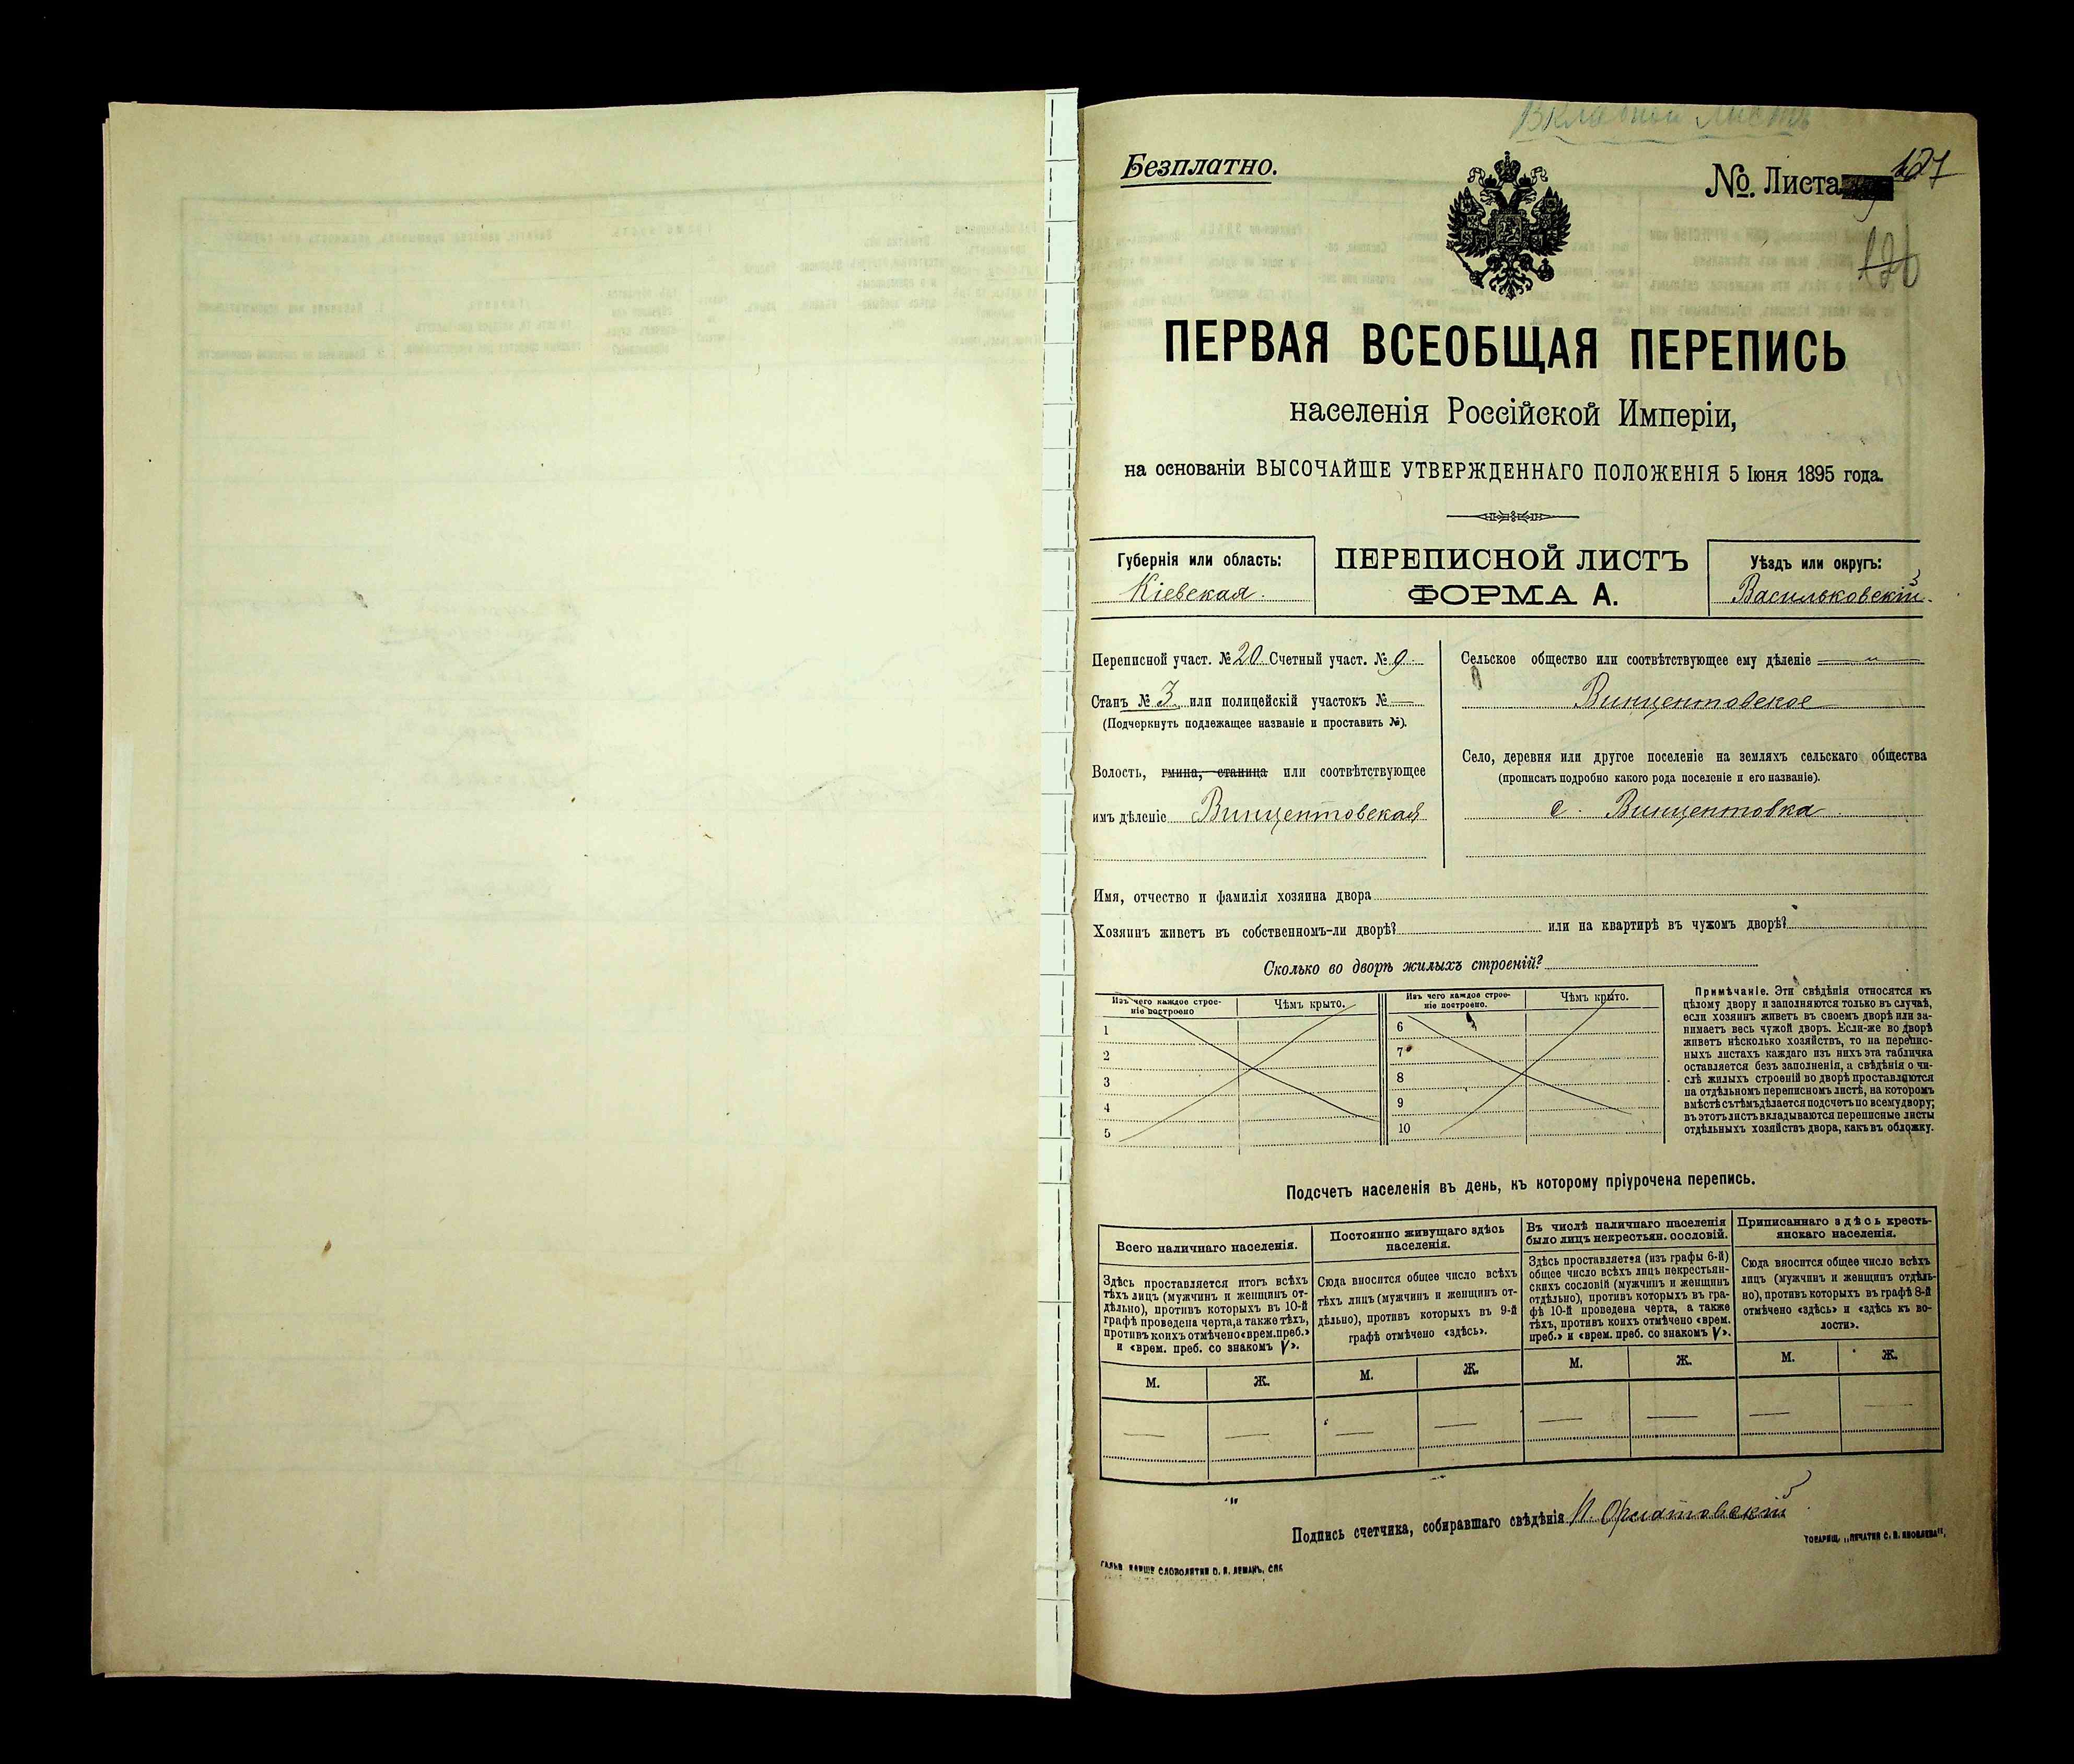 Вкладной листъ
Безплатно.
№. Листа 127
126
ПЕРВАЯ ВСЕОБЩАЯ ПЕРЕПИСЬ
населенія Россійской Имперіи,
на основаніи ВЫСОЧАЙШЕ УТВЕРЖДЕННАГО ПОЛОЖЕНІЯ 5 Іюня 1895 года.
Губернія или область:
Кіевская.
ПЕРЕПИСНОЙ ЛИСТЪ
ФОРМА А.
Уѣздъ или округъ:
Васильковскій.
Переписной участ. № 20 Счетный участ. № 9
Станъ № 3 или полицейскій участокъ № —
(Подчеркнуть подлежащее названіе и проставить №).
Волость, гмина, станица или соотвѣтствующее
имъ дѣленіе Винцентовская
Сельское общество или соотвѣтствующее ему дѣленіе — „ —
Винцентовское
Село, деревня или другое поселеніе на земляхъ сельскаго общества
(прописать подробно какого рода поселеніе и его названіе).
с. Винцентовка
Имя, отчество и фамилія хозяина двора
Хозяинъ живетъ въ собственномъ-ли дворѣ? или на квартирѣ въ чужомъ дворѣ?
Сколько во дворѣ жилыхъ строеній?
Изъ чего каждое строе-
ніе построено
Чѣмъ крыто.
1
2
3
4
5
Изъ чего каждое строе-
ніе построено.
Чѣмъ крыто.
6
7
8
9
10
Примѣчаніе. Эти свѣдѣнія относятся къ
цѣлому двору и заполняются только въ случаѣ,
если хозяинъ живетъ въ своемъ дворѣ или за-
нимаетъ весь чужой дворъ. Если-же во дворѣ
живетъ нѣсколько хозяйствъ, то на перепис-
ныхъ листахъ каждаго изъ нихъ эта табличка
оставляется безъ заполненія, а свѣдѣнія о чи-
слѣ жилыхъ строеній во дворѣ проставляются
на отдѣльномъ переписномъ листѣ, на которомъ
вмѣстѣ съ тѣмъ дѣлается подсчетъ по всему двору;
въ этотъ листъ вкладываются переписные листы
отдѣльныхъ хозяйствъ двора, какъ въ обложку.
Подсчетъ населенія въ день, къ которому пріурочена перепись.
Всего наличнаго населенія.
Здѣсь проставляется итогъ всѣхъ
тѣхъ лицъ (мужчинъ и женщинъ от-
дѣльно), противъ которыхъ въ 10-й
графѣ проведена черта, а также тѣхъ,
противъ коихъ отмѣчено «врем. преб.»
и «врем. преб. со знакомъ V».
М. Ж.
— —
Постоянно живущаго здѣсь
населенія.
Сюда вносится общее число всѣхъ
тѣхъ лицъ (мужчинъ и женщинъ от-
дѣльно), противъ которыхъ въ 9-й
графѣ отмѣчено «здѣсь».
М. Ж.
— —
Въ числѣ наличнаго населенія
было лицъ некрестьян. сословій.
Здѣсь проставляется (изъ графы 6-й)
общее число всѣхъ лицъ некрестьян-
скихъ сословій (мужчинъ и женщинъ
отдѣльно), противъ которыхъ въ гра-
фѣ 10-й проведена черта, а также
тѣхъ, противъ коихъ отмѣчено «врем.
преб.» и «врем. преб. со знакомъ V».
М. Ж.
— —
Приписаннаго здѣсь кресть-
янскаго населенія.
Сюда вносится общее число всѣхъ
лицъ (мужчинъ и женщинъ отдѣль-
но), противъ которыхъ въ графѣ 8-й
отмѣчено «здѣсь» и «здѣсь къ во-
лости».
М. Ж.
— —
Подпись счетчика, собиравшаго свѣдѣнія
ТОВАРИЩ. „ПЕЧАТНЯ С. П. ЯКОВЛЕВА“,
СЛОВОЛИТНИ О. И. ЛЕМАНЪ, СПБ